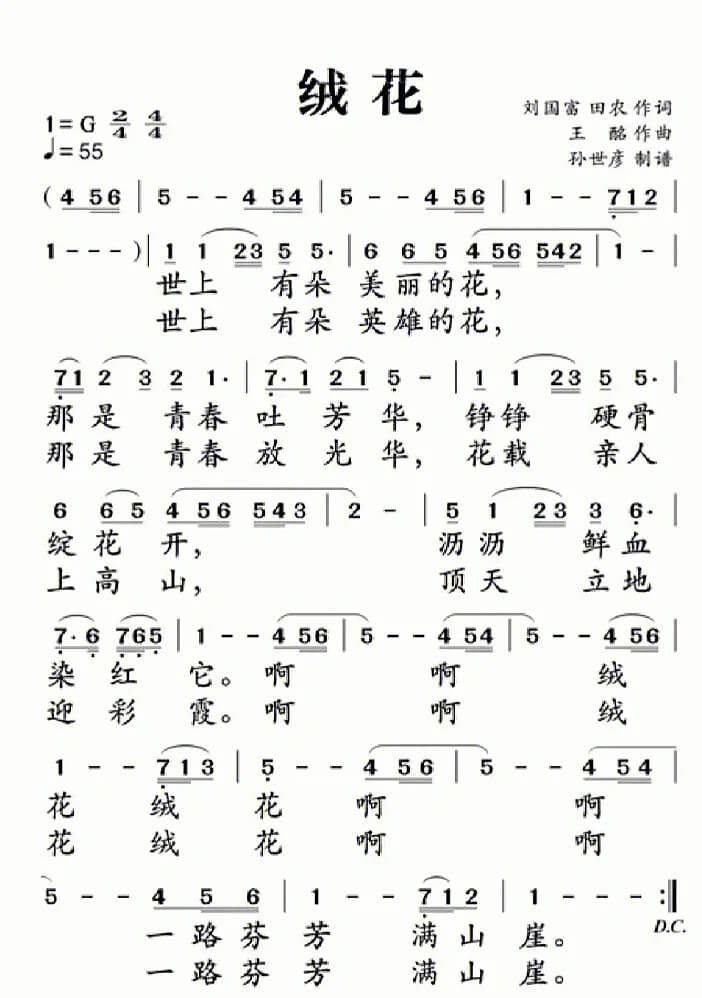 绒花
刘国富 田农 作词
1=G 2/4 4/4
王 酩 作曲
♩=55
孙世彦 制谱
( 4 5 6 | 5 - - 4 5 4 | 5 - - 4 5 6 | 1 - - 7 1 2 |
1 - - - ) | 1 1 2 3 5 5· | 6 6 5 4 5 6 5 4 2 | 1 - |
世上 有朵 美丽的花,
世上 有朵 英雄的花,
7 1 2 3 2 1· | 7· 1 2 1 5 - | 1 1 2 3 5 5· |
那是 青春 吐 芳 华, 铮铮 硬骨
那是 青春 放 光 华, 花载 亲人
6 6 5 4 5 6 5 4 3 | 2 - | 5 1 2 3 3 6· |
绽 花 开, 沥沥 鲜血
上 高 山, 顶天 立地
7· 6 7 6 5 | 1 - - 4 5 6 | 5 - - 4 5 4 | 5 - - 4 5 6 |
染 红 它。啊 啊 绒
迎 彩 霞。啊 啊 绒
1 - - 7 1 3 | 5 - - 4 5 6 | 5 - - 4 5 4 |
花 绒 花 啊 啊
花 绒 花 啊 啊
5 - - 4 5 6 | 1 - - 7 1 2 | 1 - - - :‖
D.C.
一路芬芳 满山崖。
一路芬芳 满山崖。